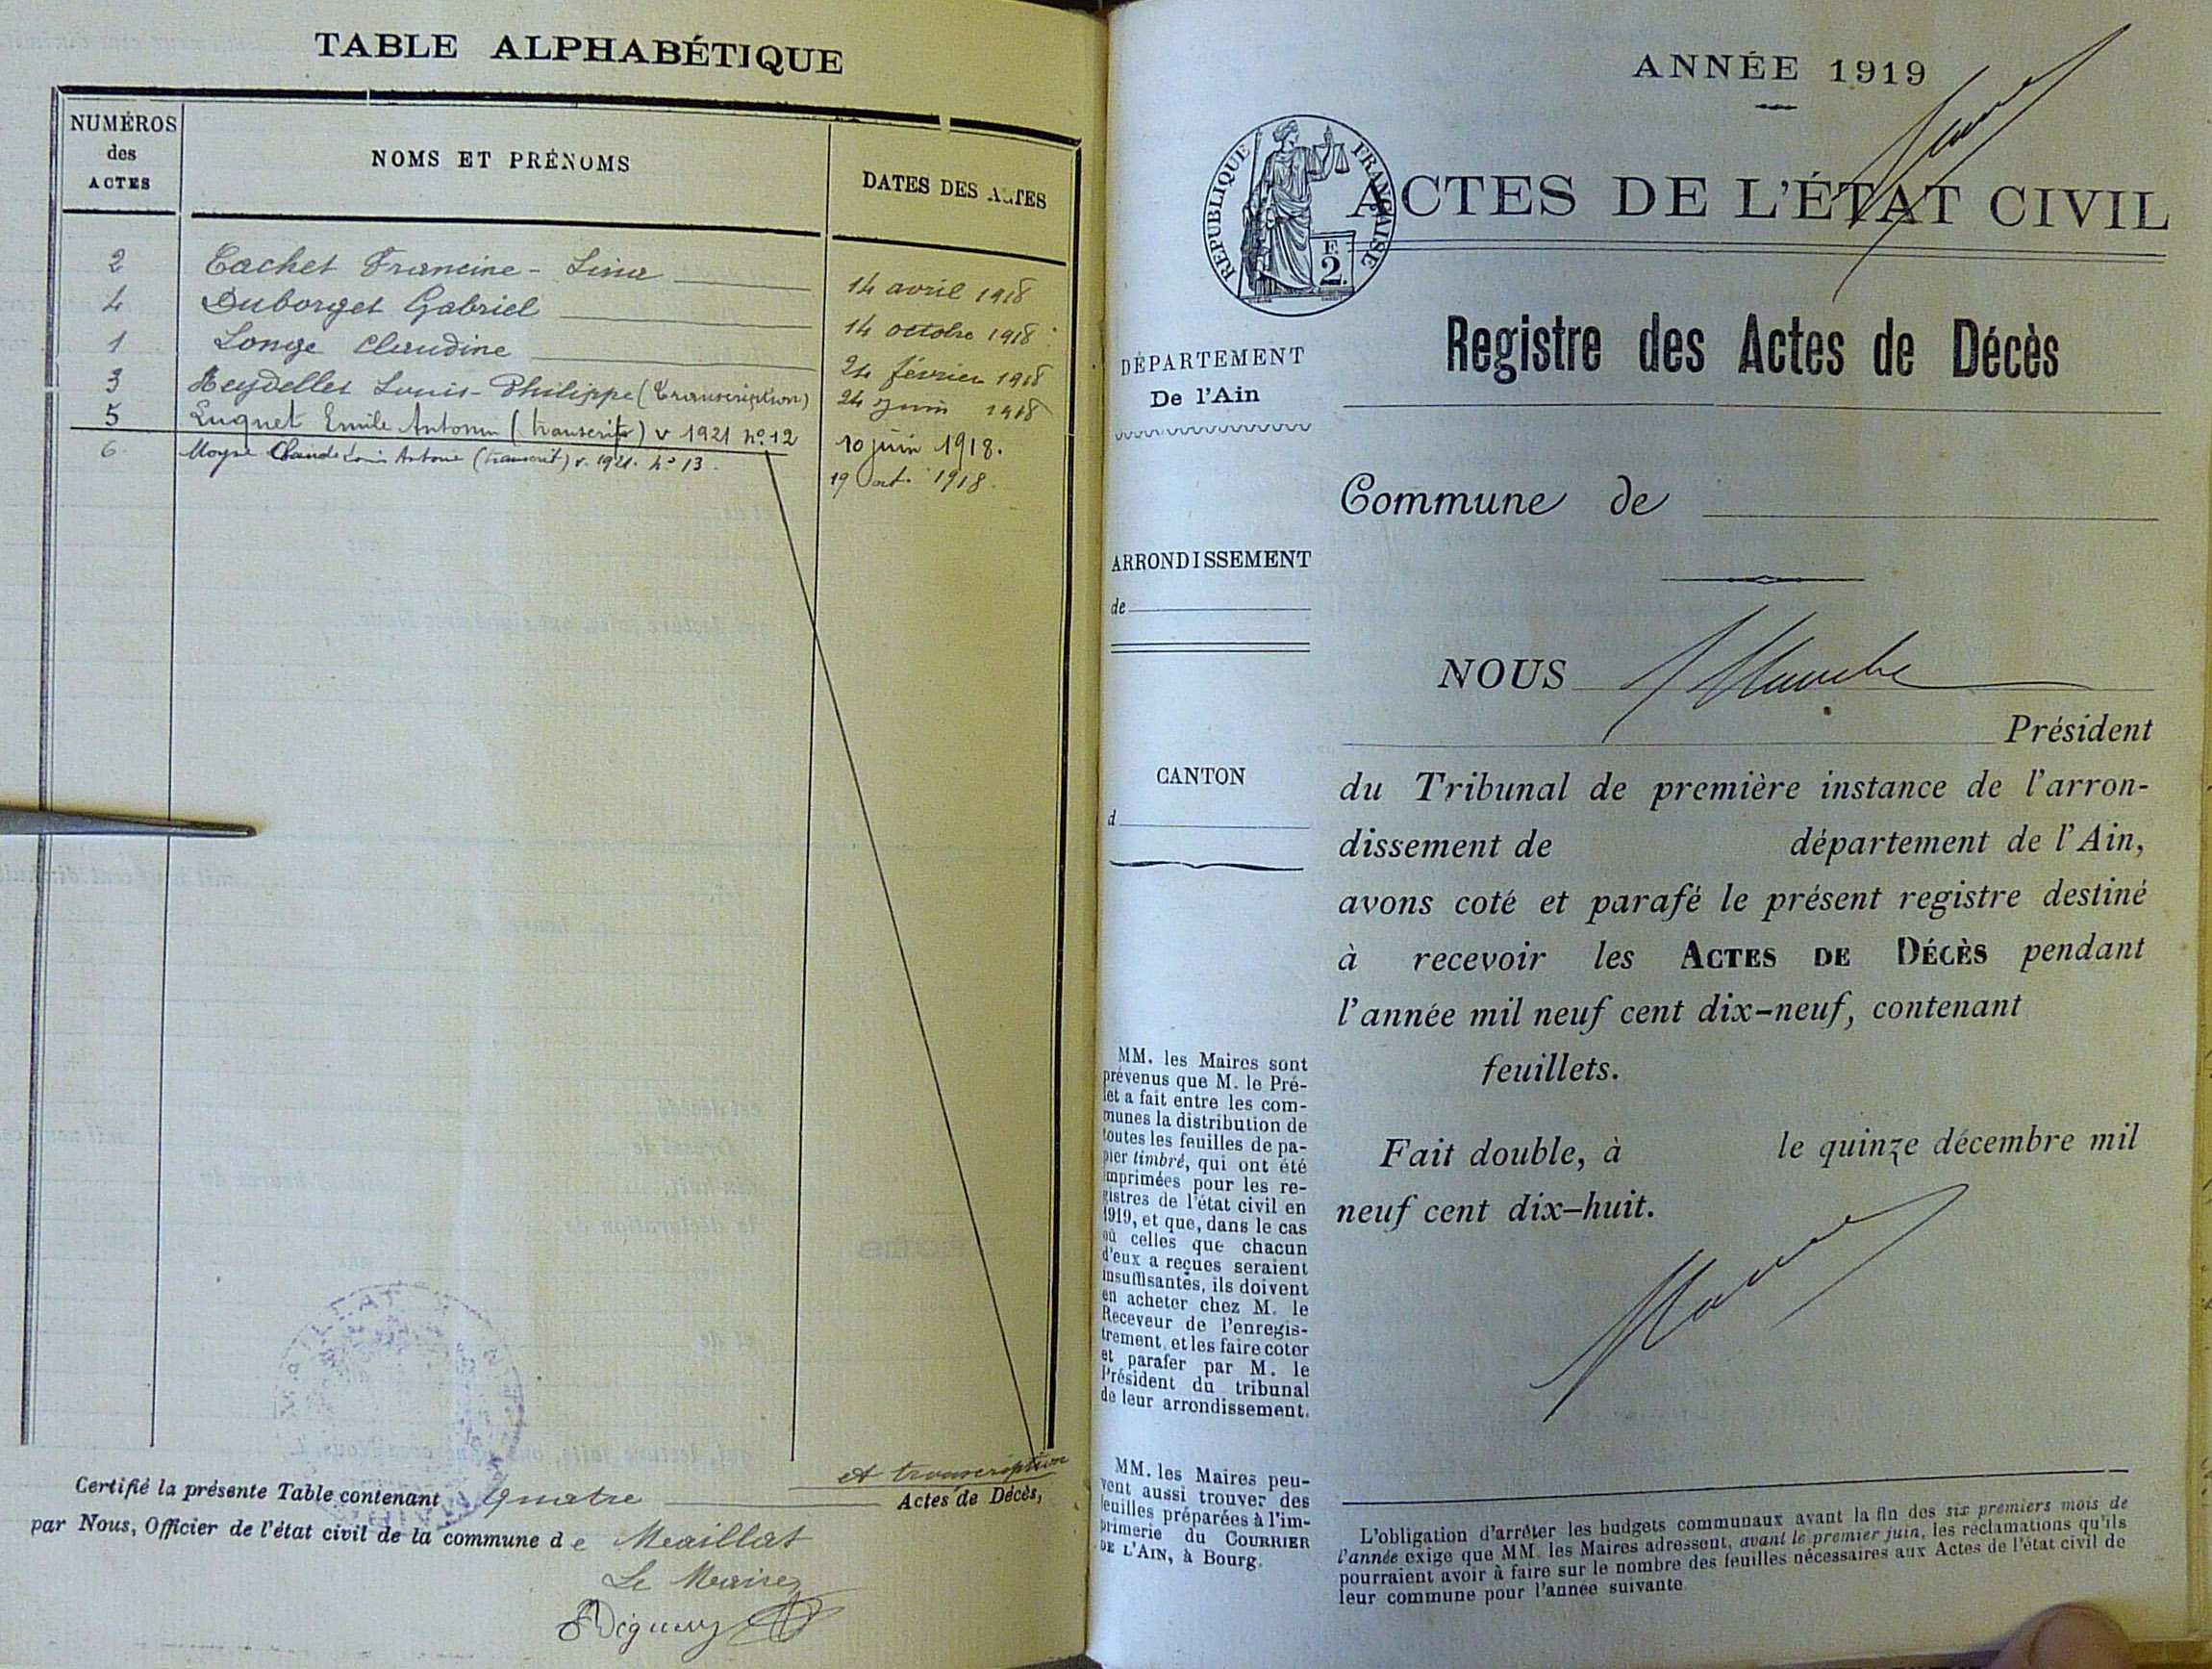 TABLE ALPHABÉTIQUE
NUMÉROS des ACTES
NOMS ET PRÉNOMS
DATES DES ACTES
2 Cachet Francine - Lina 14 avril 1918
4 Duborget Gabriel 14 octobre 1918
1 Longe Claudine 24 février 1918
3 Reydellet Louis-Philippe (transcription) 24 juin 1918
5 Luquet Emile Antonin (transcrit) v 1921 nº 12 10 juin 1918.
6 Moyne Claude Louis Antoine (transcrit) v. 1921. nº 13. 19 Oct. 1918.
et transcription
Certifié la présente Table contenant quatre Actes de Décès,
par Nous, Officier de l'état civil de la commune de Maillat
Le Maire,
ANNÉE 1919
RÉPUBLIQUE FRANÇAISE
E.
2.
ACTES DE L'ÉTAT CIVIL
Registre des Actes de Décès
DÉPARTEMENT
De l'Ain
Commune de
ARRONDISSEMENT
de
NOUS
Président
CANTON
d
du Tribunal de première instance de l'arron-
dissement de département de l'Ain,
avons coté et parafé le présent registre destiné
à recevoir les ACTES DE DÉCÈS pendant
l'année mil neuf cent dix-neuf, contenant
feuillets.
Fait double, à le quinze décembre mil
neuf cent dix-huit.
MM. les Maires sont
prévenus que M. le Pré-
fet a fait entre les com-
munes la distribution de
toutes les feuilles de pa-
pier timbré, qui ont été
imprimées pour les re-
gistres de l'état civil en
1919, et que, dans le cas
où celles que chacun
d'eux a reçues seraient
insuffisantes, ils doivent
en acheter chez M. le
Receveur de l'enregis-
trement, et les faire coter
et parafer par M. le
Président du tribunal
de leur arrondissement.
MM. les Maires peu-
vent aussi trouver des
feuilles préparées à l'im-
primerie du COURRIER
DE L'AIN, à Bourg.
L'obligation d'arrêter les budgets communaux avant la fin des six premiers mois de
l'année exige que MM. les Maires adressent, avant le premier juin, les réclamations qu'ils
pourraient avoir à faire sur le nombre des feuilles nécessaires aux Actes de l'état civil de
leur commune pour l'année suivante